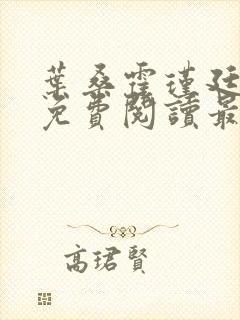 葉桑霍瑾廷
免費閱讀最
高珺賢